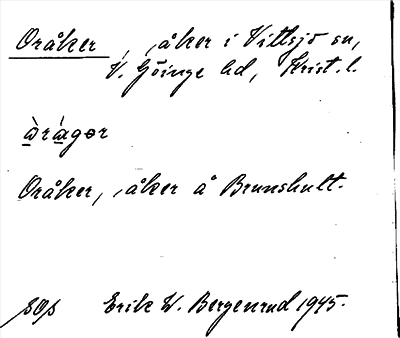 Oråker, åker i Vittsjö sn,
V. Göinge hd, Krist. l.
ɑ̀rɑ́gər
Oråker, åker å Brunshult.
Erik W. Bergenrud 1945.